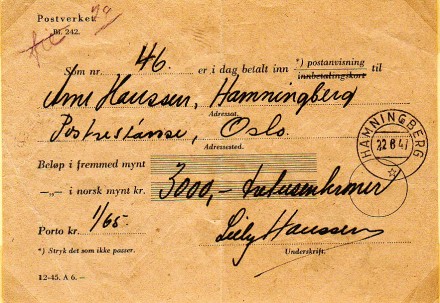 Postverket.
Bl. 242.
Som nr. 46. er i dag betalt inn *) postanvisning innbetalingskort til
Arne Hanssen, Hamningberg
Adressat.
Postrestanse, Oslo.
Adressested.
Beløp i fremmed mynt
—„— i norsk mynt kr. 3000,- tretusenkroner
HAMNINGBERG
22 8 47
Porto kr. 1/65 Lilly Hanssen
*) Stryk det som ikke passer. Underskrift.
12-45. A 6. —